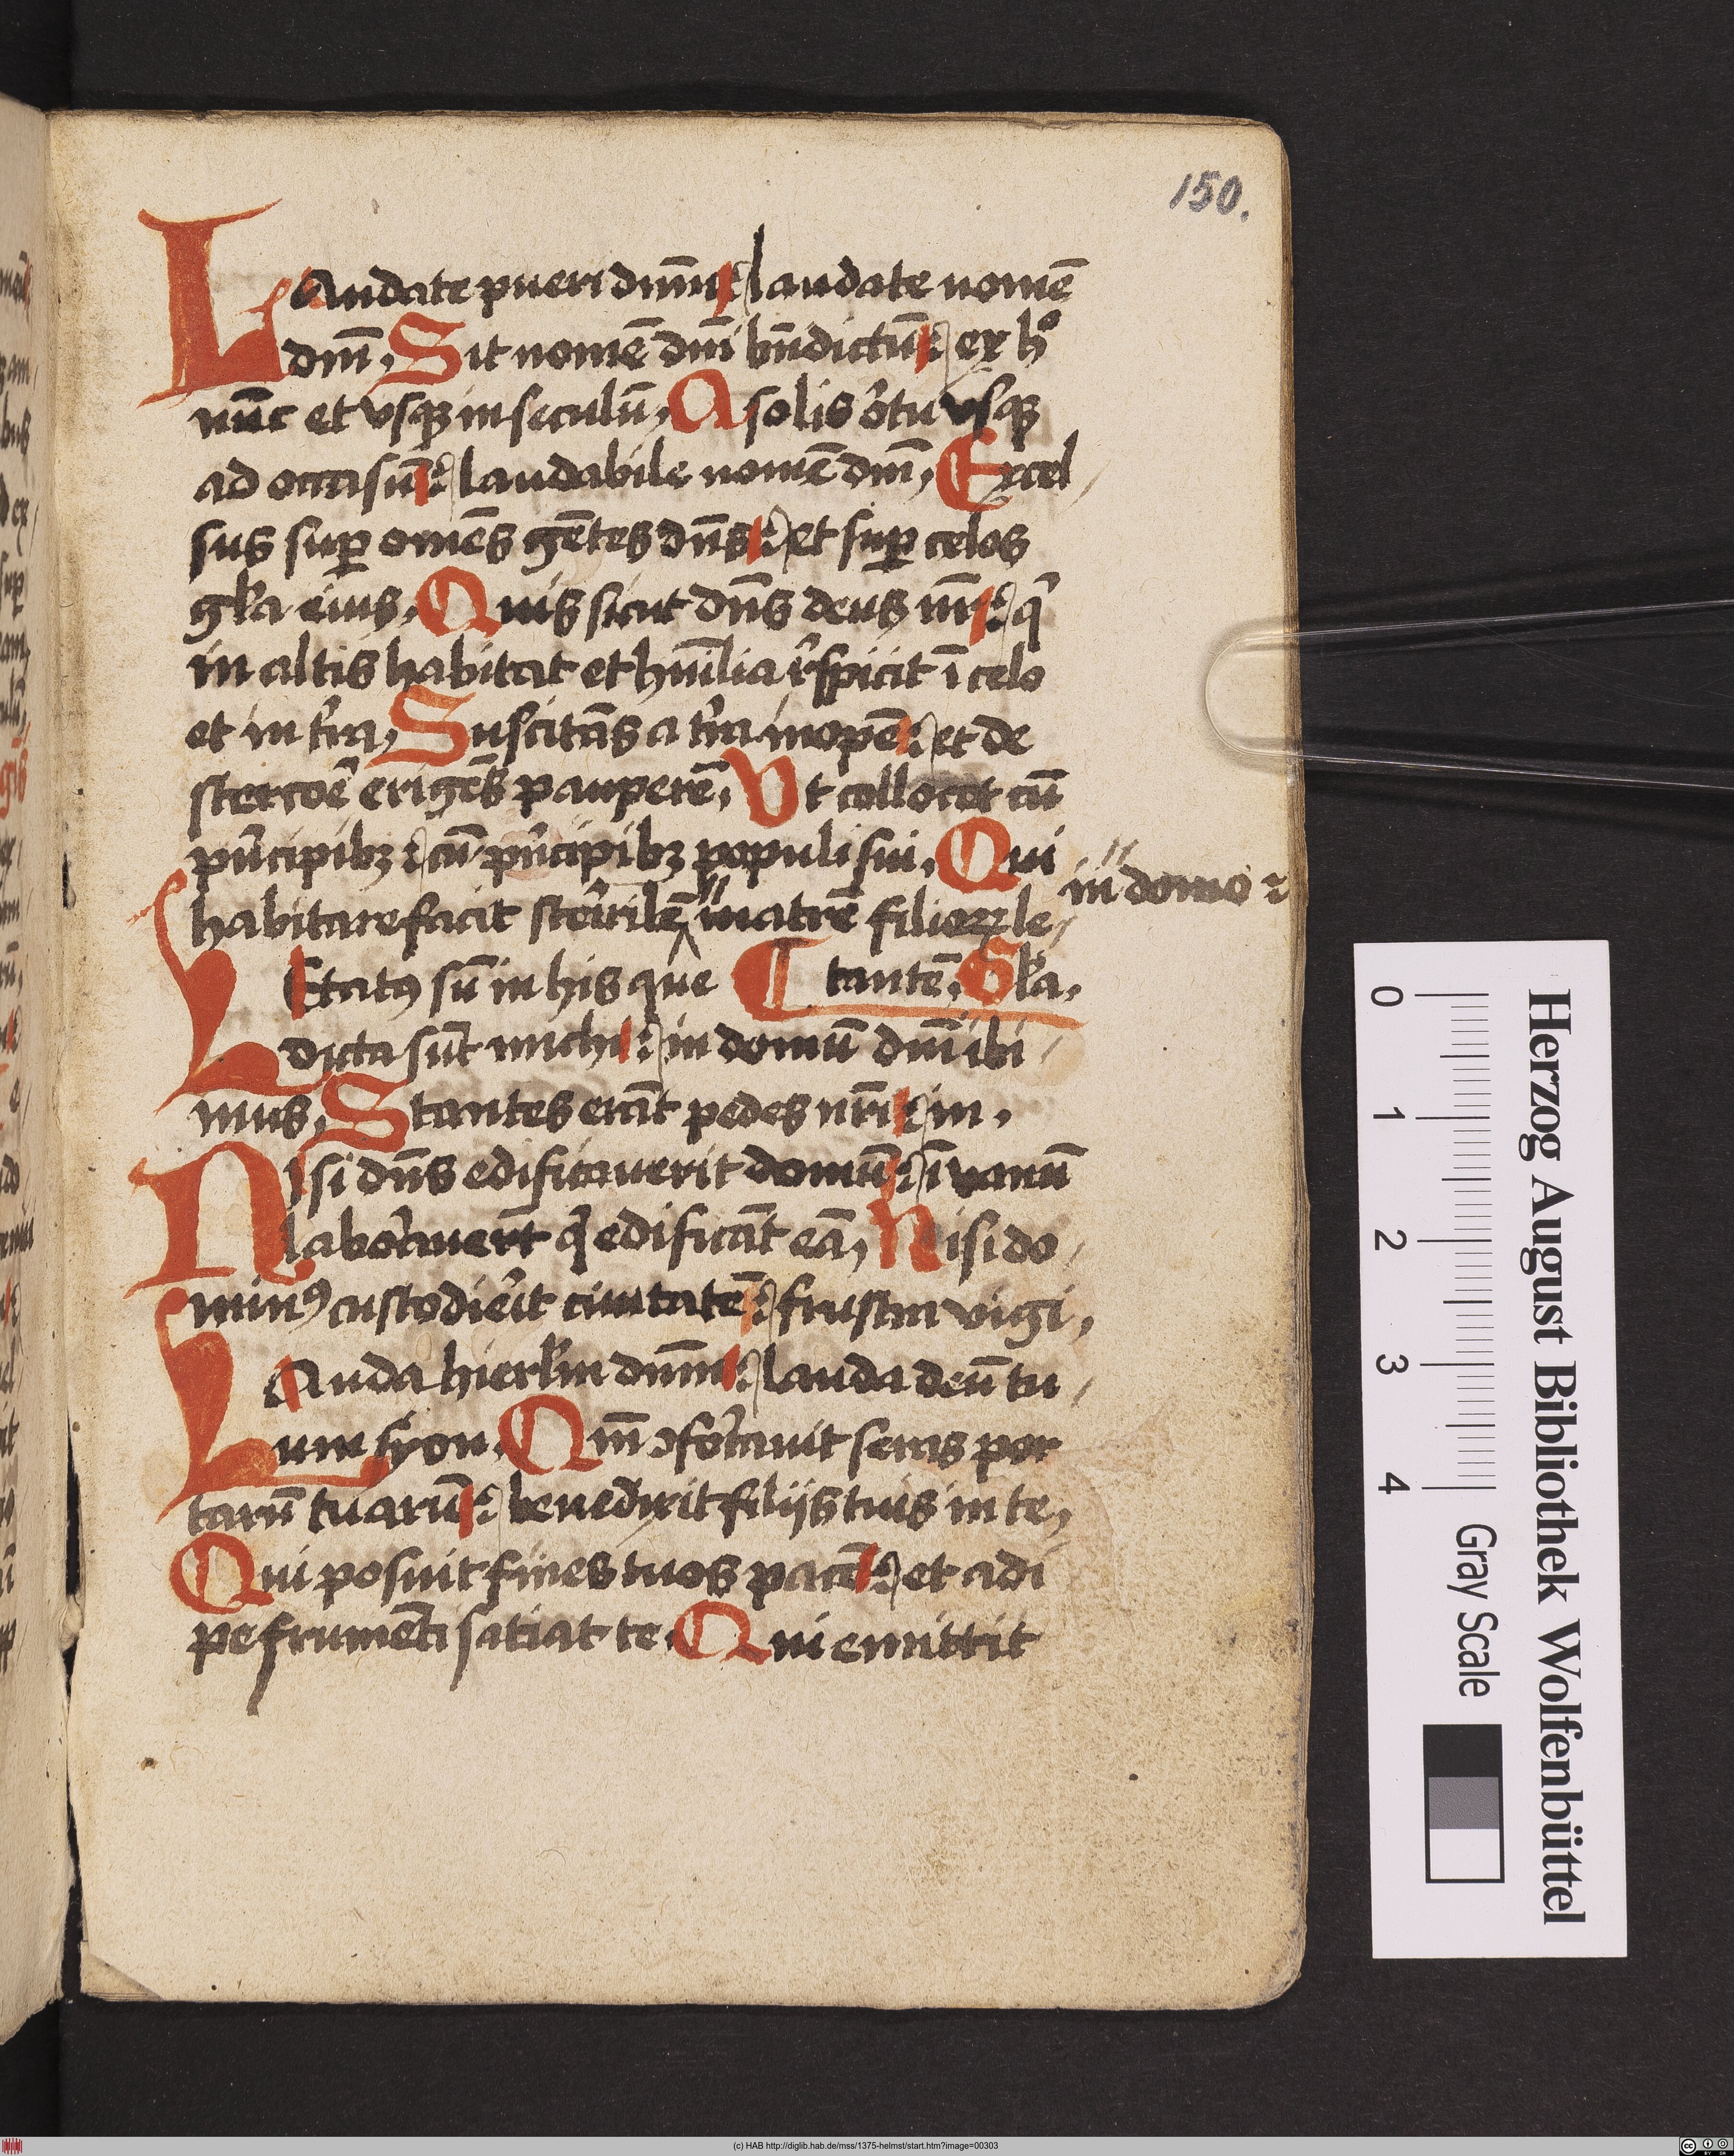 150.
LAudate pueri dn̄m : laudate nomē
dn̄i, Sit nomē dn̄i bn̄dictū : ex hº
nūc et vsqꝫ in seculū, A solis ortu vsqꝫ
ad occasū : laudabile nomē dn̄i, Excel
sus suꝑ om̄es gētes dn̄s : et suꝑ celos
gl̄a eius, Quis sicut dn̄s deus nr̄ : qͥ
in altis habitat et hūilia rͤspicit ī celo
et in tr̄a, Suscitās a tr̄a inopē : et de
stercoē erigēs pauperē, Vt collocet cū
pͥncipibꝫ : cū pͥncipibꝫ populi sui, Qui
habitare facit sterilē matrē filioꝝ le
in domo
LEtatꝯ sū in his que
tantē, Gl̄a,
dicta sūt michi : in domū dn̄i ibi
mus, Stantes erāt pedes nr̄i : in,
NIsi dn̄s edificauerit domū : ī vanū
laborauer̄t qͥ edificāt eā, Nisi do
minꝯ custodierit ciuitatē : frustra vigi,
LAuda hierl̄m dn̄m : lauda deū tu
um syon, Qm̄ ꝯfortauit seras por
tarū tuarū : benedixit filijs tuis in te,
Qui posuit fines tuos pacē : et adi
pe frumēti satiat te, Qui emittit
Herzog August Bibliothek Wolfenbüttel
0 1 2 3 4 Gray Scale
(c) HAB http://diglib.hab.de/mss/1375-helmst/start.htm?image=00303